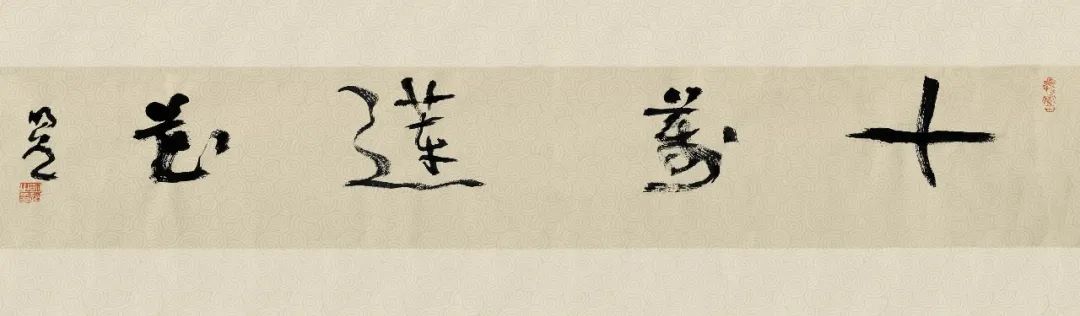 十萬蓮花